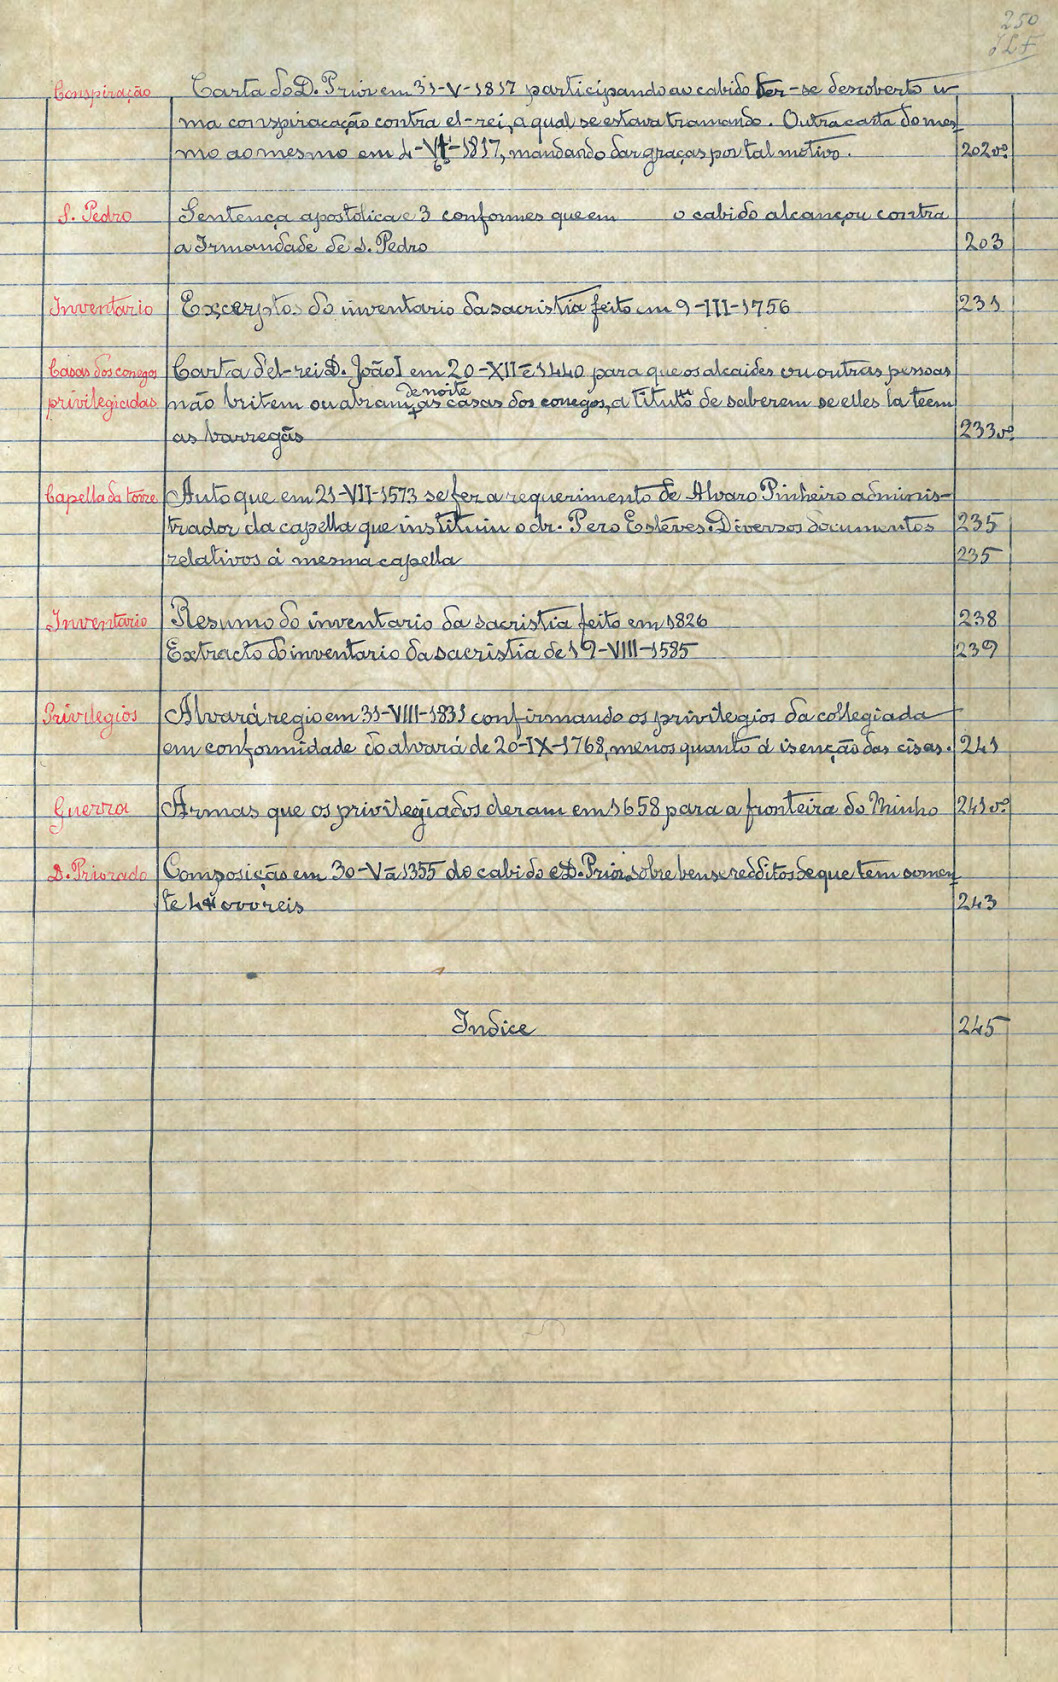 250
JLF
Conspiração Carta do D. Prior em 31-V-1817 participando ao cabido ter-se descoberto u-
ma conspiracação contra el-rei, a qual se estava tramando. Outra carta do mes-
mo ao mesmo em 4-VI-1817, mandando dar graças por tal motivo. 202vº
S. Pedro Sentença apostolica e 3 conformes que em o cabido alcançou contra
a Irmandade de S. Pedro 203
Inventario Excerptos do inventario da sacristia feito em 9-III-1756 231
Casas dos conegos Carta d'el-rei D. João I em 20-XII-1440 para que os alcaides ou outras pessoas
de noite
privilegiadas não britem ou abram, as casas dos conegos, a titulo de saberem se elles la teem
as barregãs 233vº
Capella da torre Auto que em 21-VII-1573 se fez a requerimento de Alvaro Pinheiro adminis-
trador da capella que instituiu o dr. Pero Esteves. Diversos documentos 235
relativos á mesma capella 235
Inventario Resumo do inventario da sacristia feito em 1826 238
Extracto do inventario da sacristia de 19-VIII-1585 239
Privilegios Alvará regio em 31-VIII-1831 confirmando os privilegios da collegiada
em conformidade do alvará de 20-IX-1768, menos quanto á isenção das cisas. 241
Guerra Armas que os privilegiados deram em 1658 para a fronteira do Minho 241vº
D. Priorado Composição em 30-V-1355 do cabido e D. Prior, sobre bens e redditos de que tem somen-
te 4$000 reis 243
Indice 245